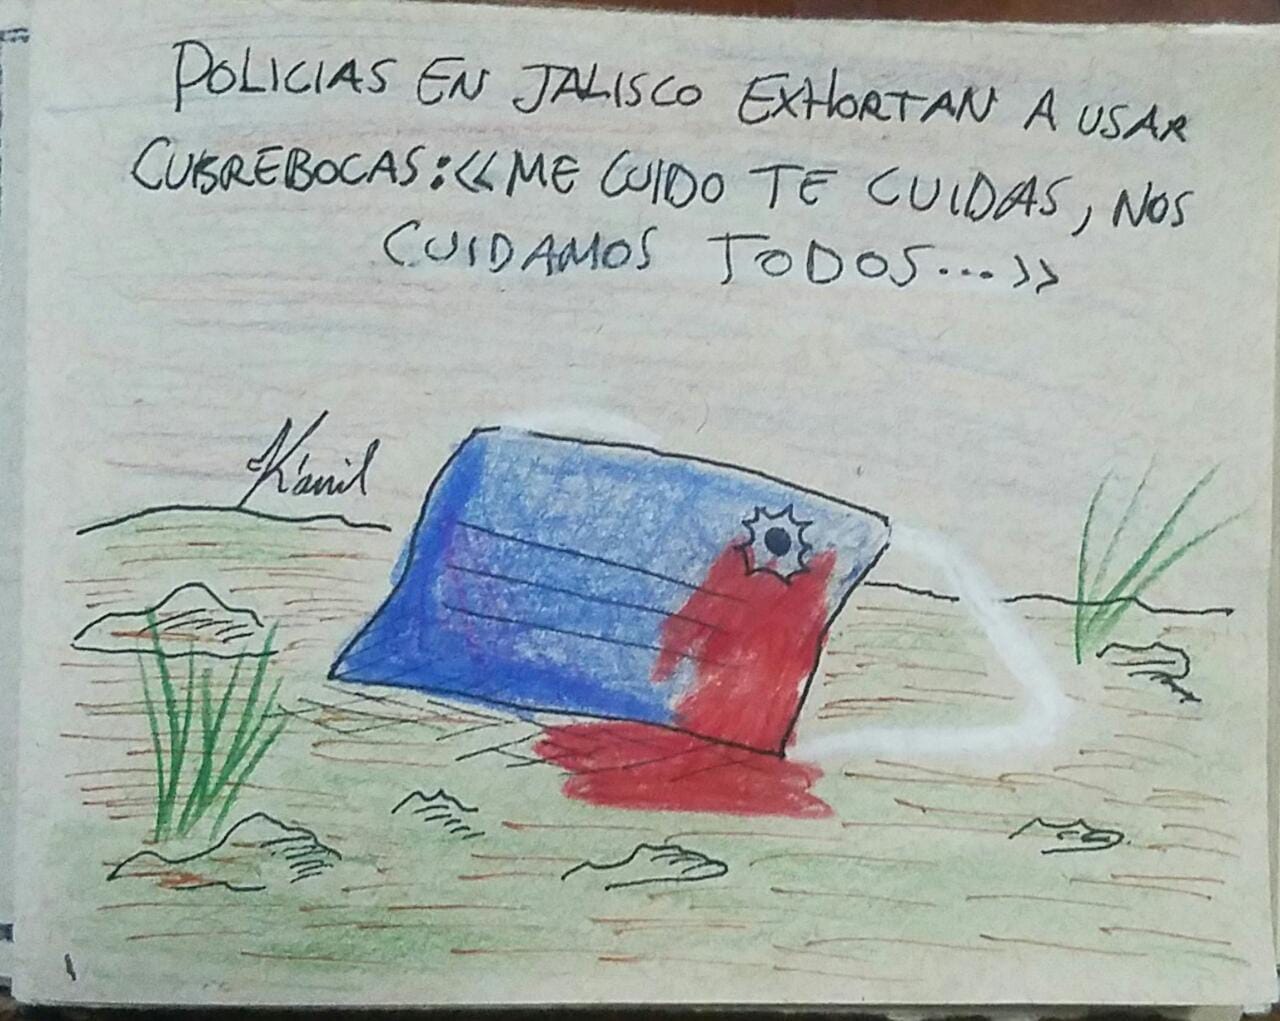 POLICIAS EN JALISCO EXHORTAN A USAR
CUBREBOCAS: «ME CUIDO TE CUIDAS, NOS
CUIDAMOS TODOS...»
Kámil